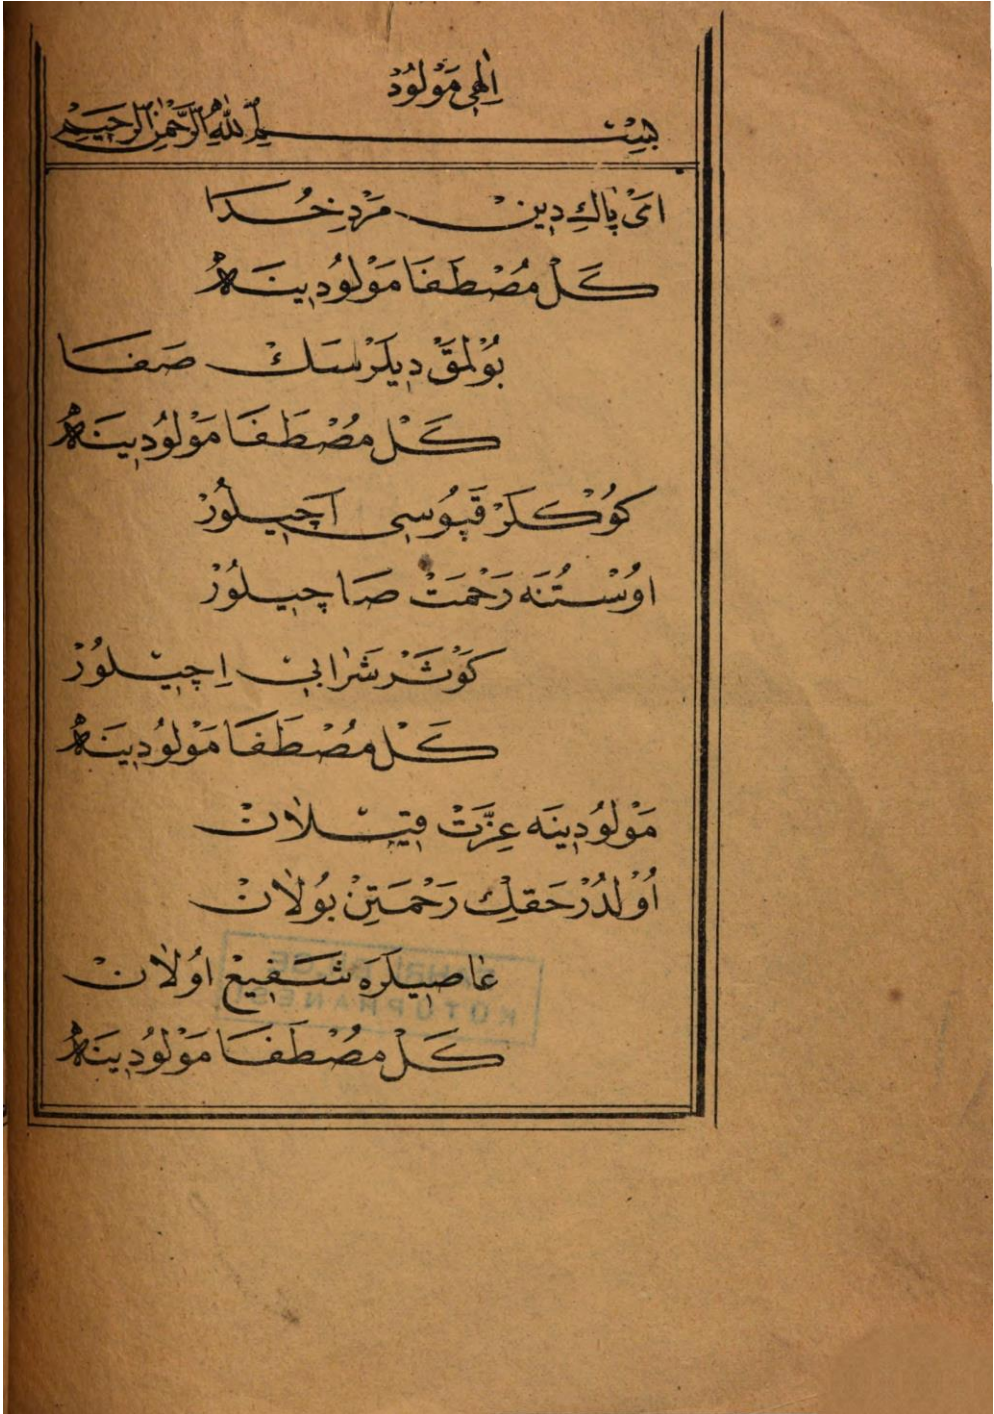 اِلٰهِي مَوْلُودْ
بِسْتْ ــــــ مِ اللّٰهِ الرَّحْمٰنِ الرَّحِيمِ
اَىْ پَاكِ دِينْ مَرْدِ خُدَا
كَلْ مُصْطَفَا مَوْلُودِينَهْ
بُوْلمَقْ دِيلَرْسَكْ صَفَا
كَلْ مُصْطَفَا مَوْلُودِينَهْ
كُوكْلَرْ قَپُوسِى آچِيلُورْ
اوُسْتُنَه رَحْمَتْ صَاچِيلُورْ
كَوْثَرْ شَرَابِى اِچِيلُورْ
كَلْ مُصْطَفَا مَوْلُودِينَهْ
مَوْلُودِينَه عِزَّتْ قِيلَانْ
اُوْلدُرْ حَقكْ رَحْمَتِنْ بُولَانْ
عَاصِيلَرَه شَفِيعْ اوُلَانْ
كَلْ مُصْطَفَا مَوْلُودِينَهْ